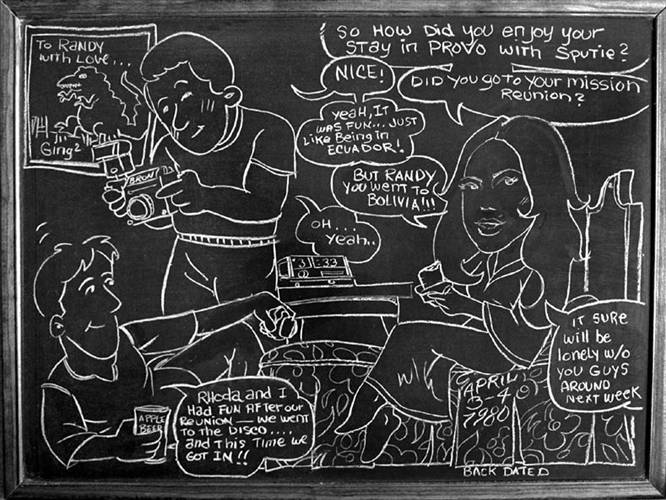 To RANDY
with LOVE...
Ging²
So How Did you enjoy your
STAY in PROVO with Sputie?
NICE!
DID you go to your mission
REUNION?
yeaH, IT
WAS FUN... JUST
Like Being in
ECUADOR!
BUT RANDY
YOU WENT TO
BOLIVIA!!!
OH...
Yeah..
BRONI
3:33
IT SURE
will be
lonely w/o
you GUYS
AROUND
NEXT WEEK
APPLE
BEER
RHoda and I
HAD FUN AFTer our
REUNION — we WENT
TO THE DISCO....
and THIS TIME WE
GOT IN!!
APRIL
3-4
1980
BACK DATED